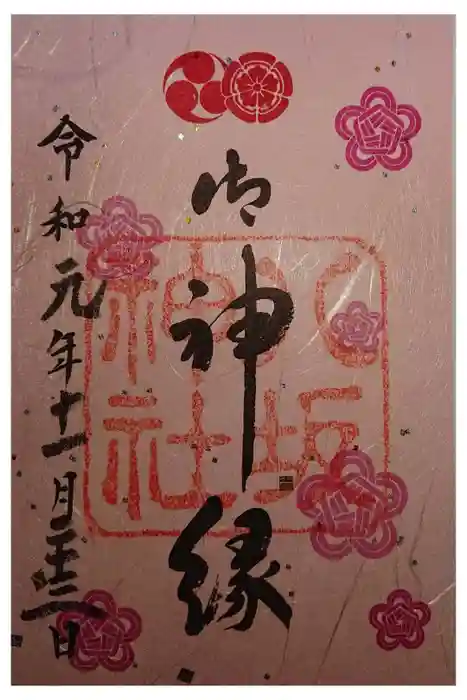 御神縁
令和元年十一月二十二日
八坂
神社